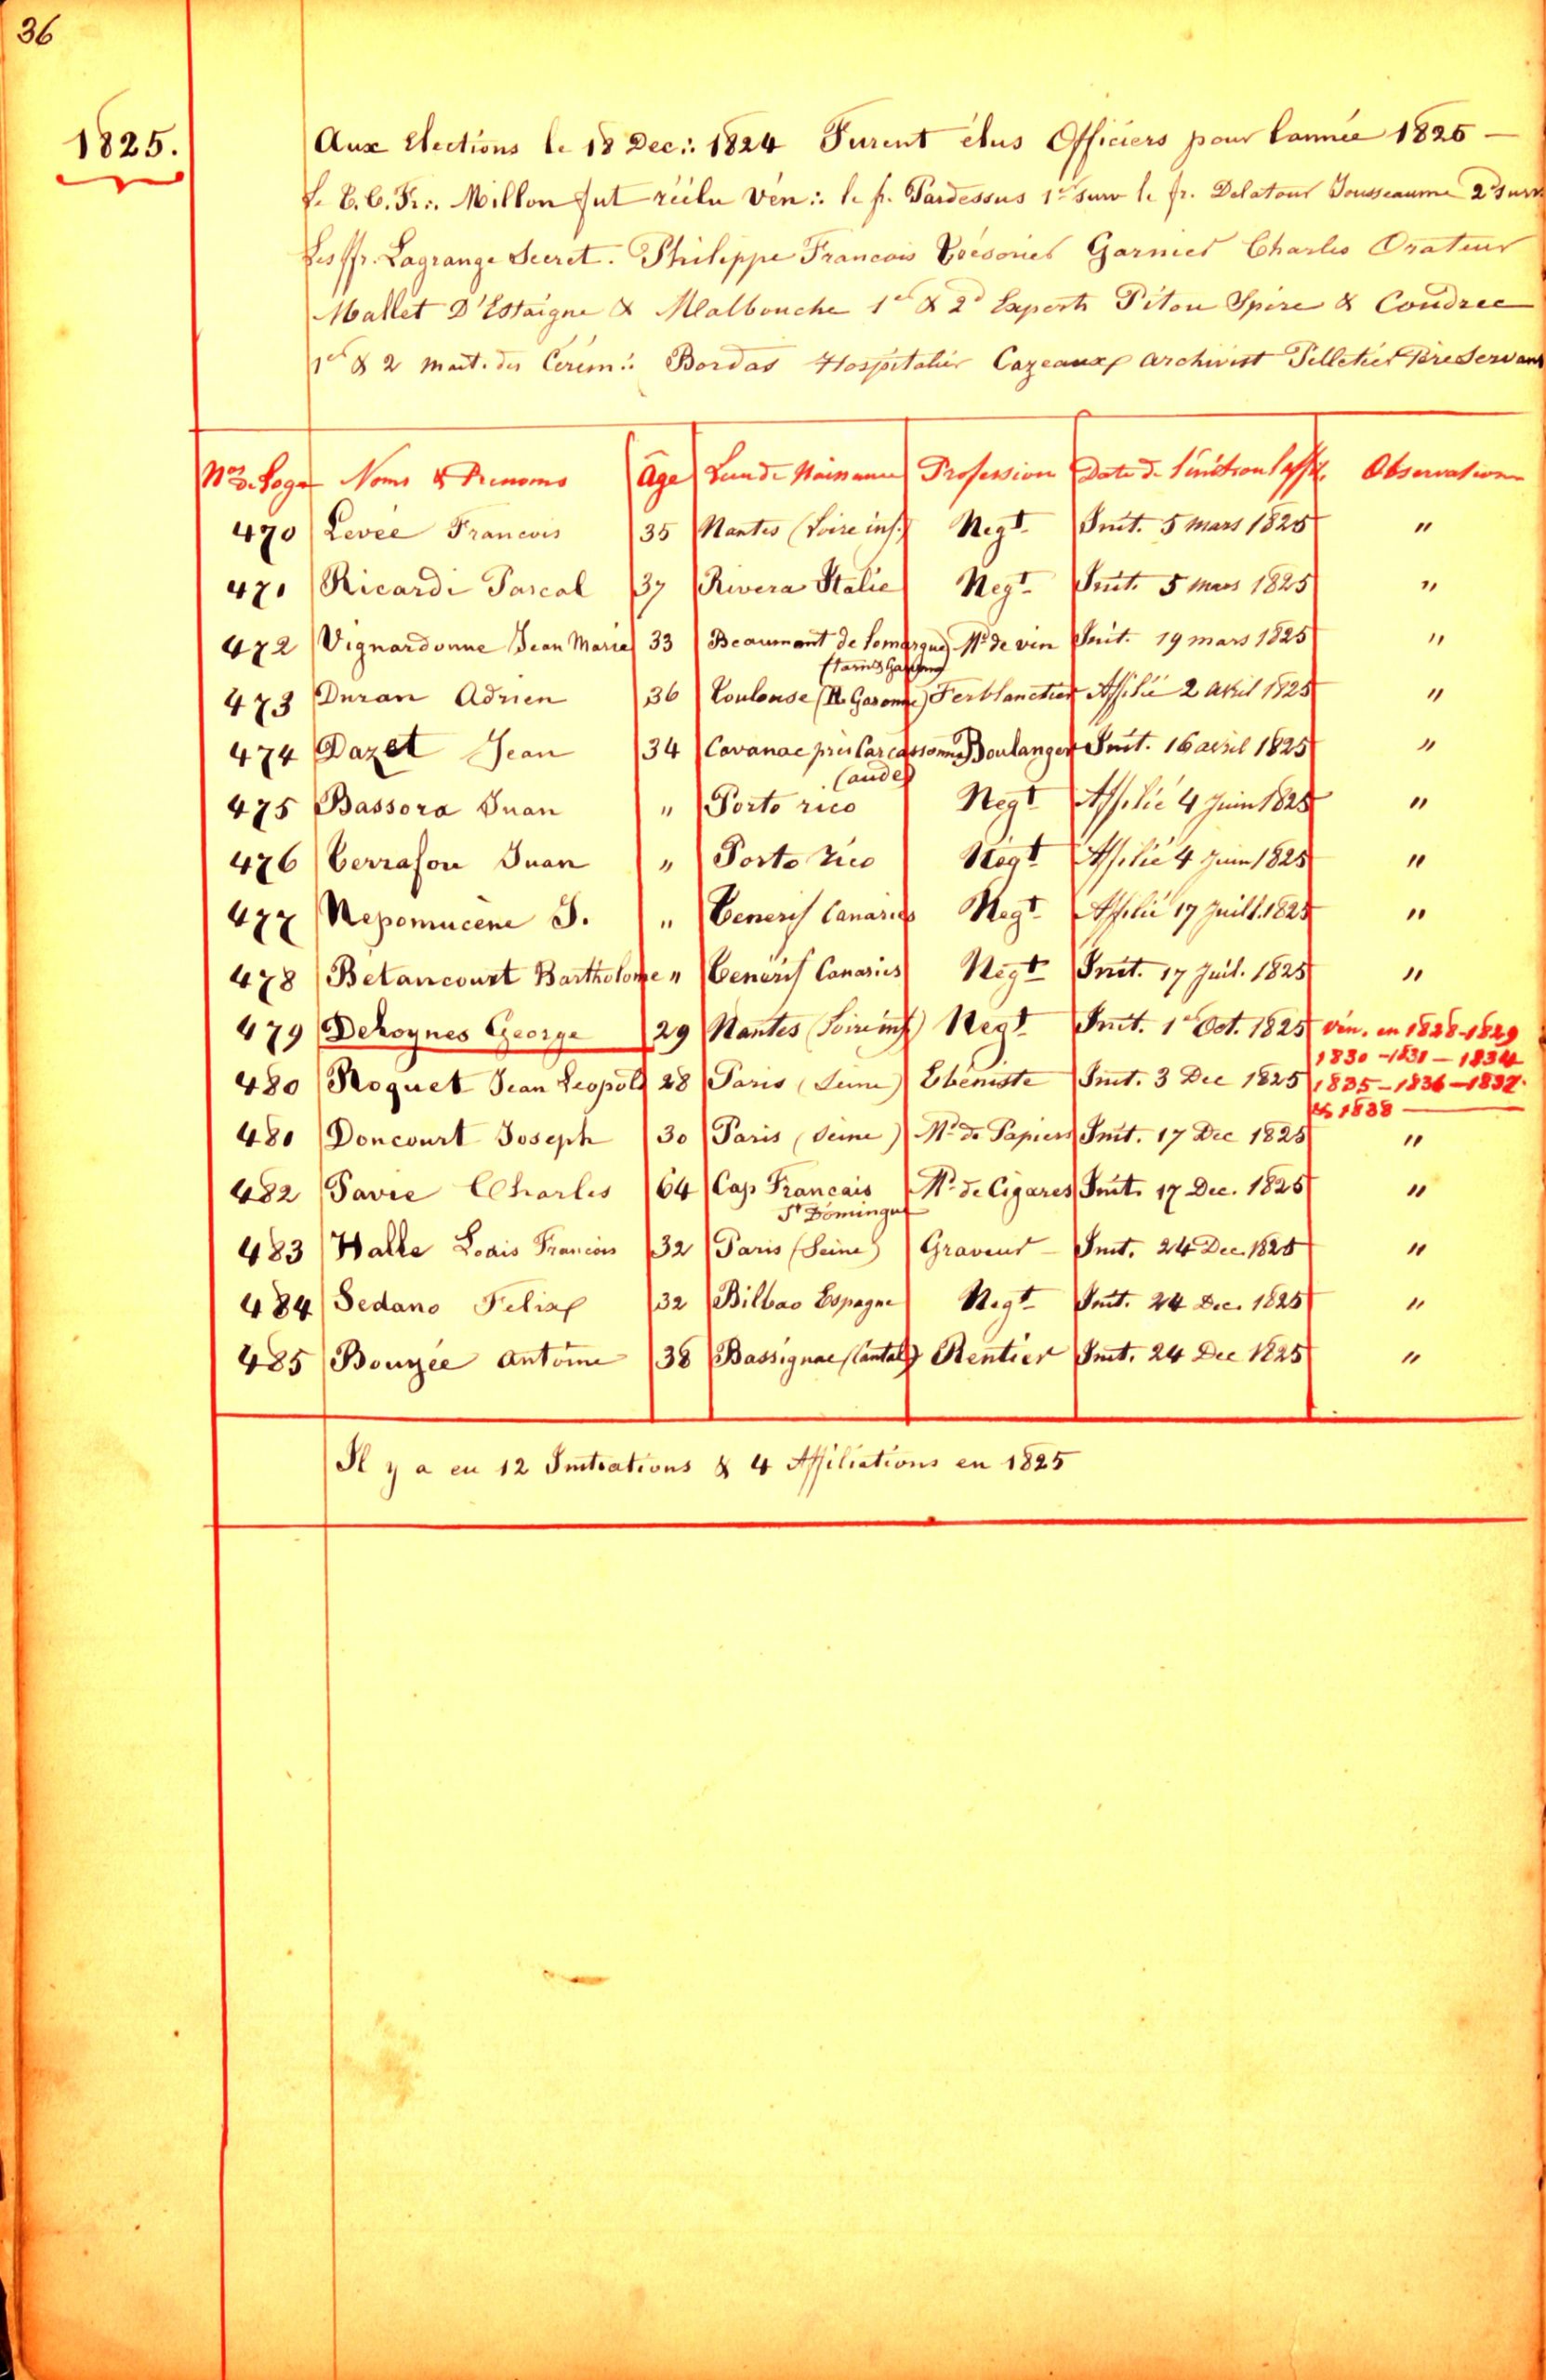 36
1825.
Aux Elections le 18 Dec:. 1824 Furent élus Officiers pour l'année 1825 —
Le T. C. Fr:. Millon fut réélu Ven:. le fr. Pardessus 1er surv le fr. Delatour Jousseaume 2d surv
Les ffr. Lagrange Secret. Philippe Francois Trésorier Garnier Charles Orateur
Mallet D'Estaigne & Malbouche 1er & 2d Experts Piton Spire & Coudree
1er & 2 mait. des Cérém:. Bordas Hospitalier Cazeaux archivist Pelletier frere Servant
No de Loge Noms & Prenoms Age Lieu de Naissance Profession Date de l'initiation l'affil. Observations
470 Levée Francois 35 Nantes (Loire inf.) Negt. Init. 5 mars 1825 "
471 Ricardi Pascal 37 Rivera Italie Negt. Init. 5 mars 1825 "
472 Vignardonne Jean Marie 33 Beaumont de Lomargue Md de vin Init. 19 mars 1825 "
(Tarn & Garonne)
473 Duran Adrien 36 Toulouse (H. Garonne) Ferblanctier Affilié 2 avril 1825 "
474 Dazet Jean 34 Cavanac près Carcassonne Boulanger Init. 16 avril 1825 "
(aude)
475 Bassora Juan " Porto rico Negt. Affilié 4 Juin 1825 "
476 Terrafon Juan " Porto rico Negt. Affilié 4 Juin 1825 "
477 Nepomucene J. " Tenerif Canaries Negt. Affilié 17 Juill. 1825 "
478 Betancourt Bartholome " Tenerif Canaries Negt. Init. 17 Juil. 1825 "
479 Dekoynes George 29 Nantes (Loire inf) Negt. Init. 1er Oct. 1825 Vén. en 1828-1829
1830 - 1831 — 1834
480 Roquet Jean Leopold 28 Paris (Seine) Ebeniste Init. 3 Dec 1825 1835 - 1836 - 1837.
& 1838 —
481 Doncourt Joseph 30 Paris (Seine) Md. de Papiers Init. 17 Dec 1825 "
482 Pavie Charles 64 Cap Francais Md. de Cigares Init. 17 Dec. 1825 "
St Domingue
483 Halle Louis Francois 32 Paris (Seine) Graveur — Init. 24 Dec. 1825 "
484 Sedano Felix 32 Bilbao Espagne Negt. Init. 24 Dec. 1825 "
485 Bougée Antoine 38 Bassignac (Cantal) Rentier Init. 24 Dec 1825 "
Il y a eu 12 Initiations & 4 Affiliations en 1825